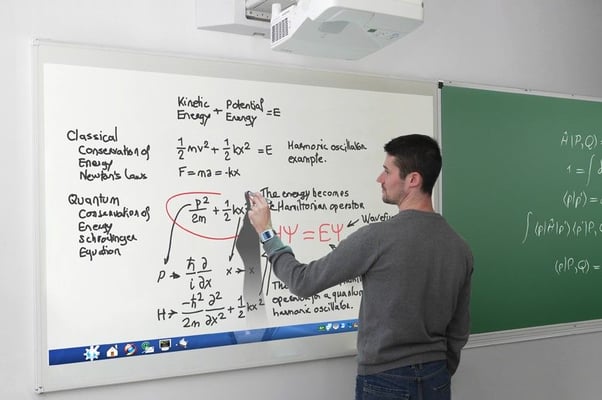 Kinetic Energy + Potential Energy = E
Classical
Conservation of
Energy
Newton's Laws
½mv² + ½kx² = E
F = ma = -kx
Harmonic oscillator
example.
Quantum
Conservation of
Energy
Schrodinger
Equation
p²/2m + ½kx²
The energy becomes
Hamiltonian operator
Ψ = EΨ
p → ℏ/i ∂/∂x
x → x
H → -ℏ²/2m ∂²/∂x² + ½kx²
The
for a quantum
harmonic oscillator.
Ĥ|P,Q⟩
1 = ∫
⟨P,Q⟩ =